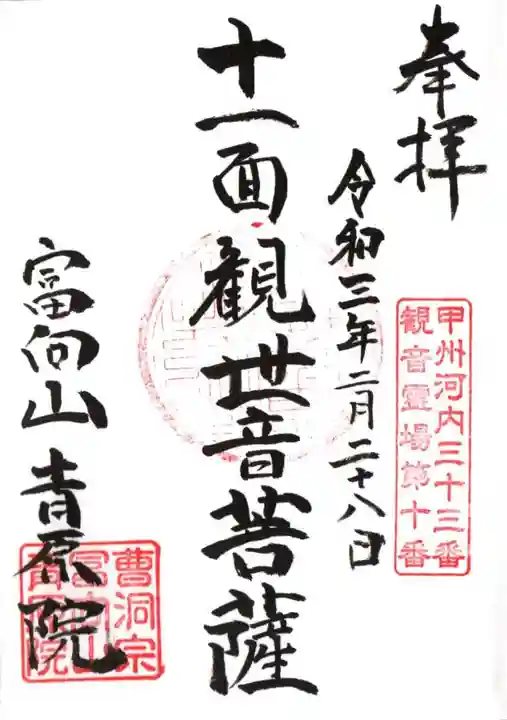 奉拝
甲州河内三十三番
観音霊場第十番
令和三年二月二十八日
十一面観世音菩薩
富向山 青原院
曹洞宗
富向山
青原院